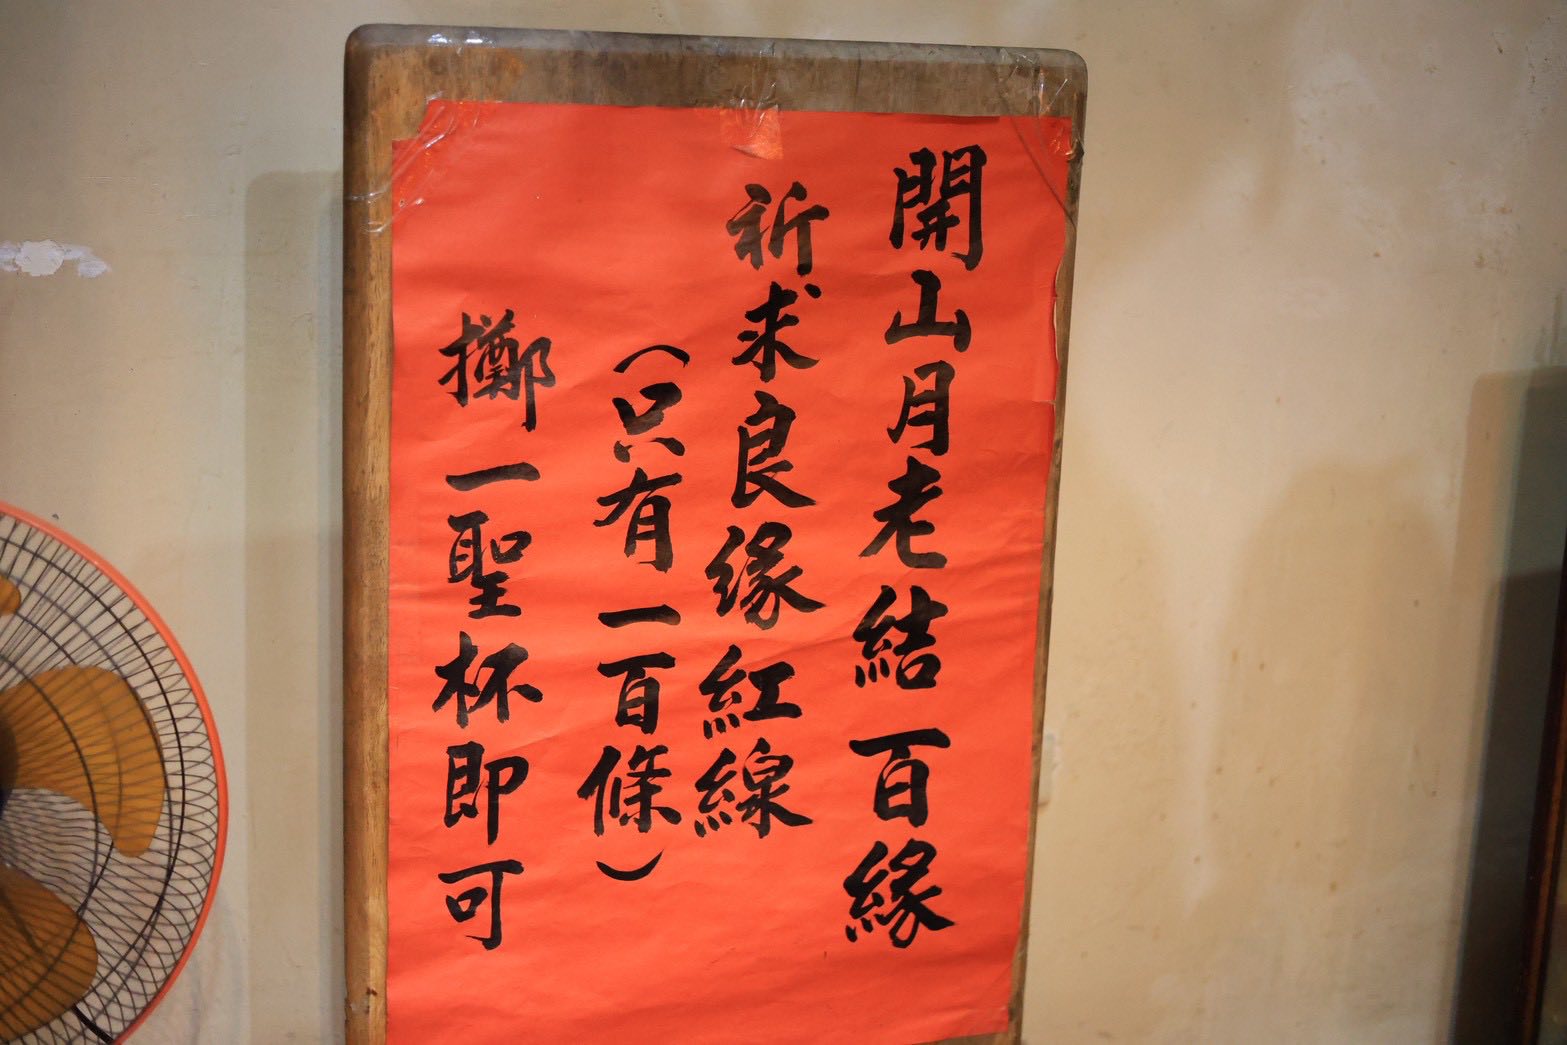 開山月老結百緣
祈求良缘紅線
（只有一百條）
擲一聖杯即可